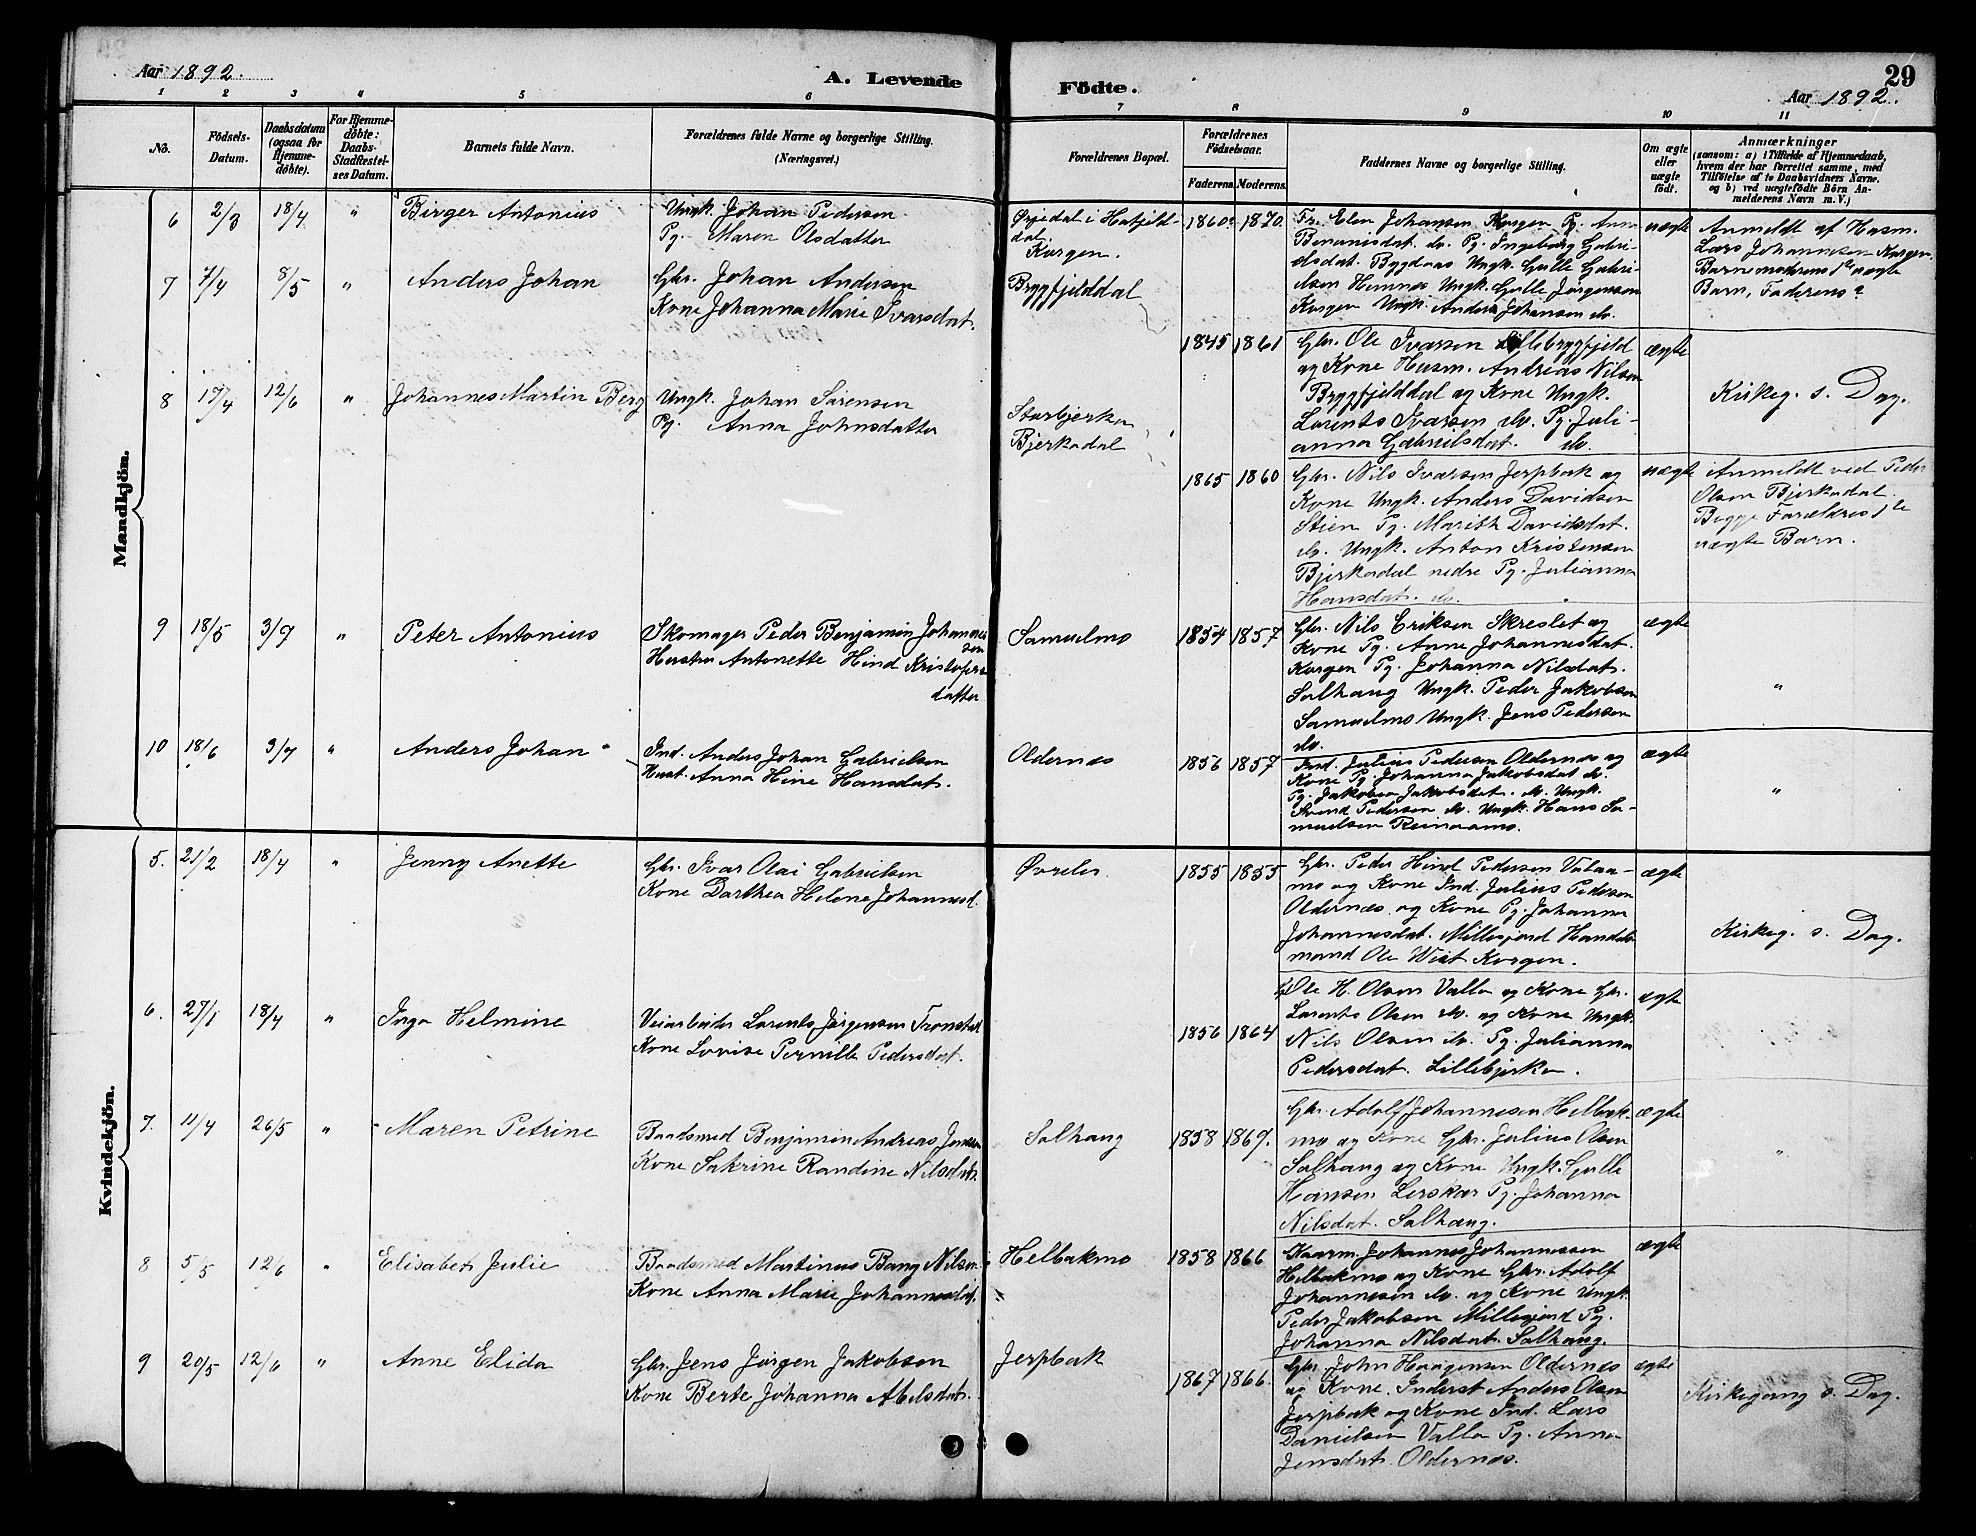 Aar 1892.
A. Levende
Födte.
29
Aar 1892.
1 2 3 4 5 6 7 8 9 10 11
No.
Födsels-
Datum.
Daabsdatum
(ogsaa for
Hjemme-
döbte).
For Hjemme-
döbte:
Daabs-
Stadfæstel-
ses Datum.
Barnets fulde Navn.
Forældrenes fulde Navne og borgerlige Stilling.
(Næringsvei.)
Forældrenes Bopæl.
Forældrenes
Födselsaar.
Faderens. Moderens.
Faddernes Navne og borgerlige Stilling.
Om ægte
eller
uægte
födt.
Anmærkninger
(saasom: a) i Tilfælde af Hjemmedaab,
hvem der har forrettet samme, med
Tilföielse af to Daabsvidners Navne.
og b) ved uægtefödte Börn An-
melderens Navn m. V.)
Mandkjön.
6 2/3 18/4 " Birger Antonius
Ungk. Johan Pedersen
Pg. Maren Olsdatter
Korgen.
1860 1870
Bygdaas Ungk. Gulle Gabri-
elsen Hemnes Ungk. Gulle Jørgensen
Korgen Ungk. Anders Johansen do.
uægte
Anmeldt af Husm.
Lars Johannesen Korgen.
Barnemoderens 1ste uægte
Barn, Faderens?
7 7/4 8/5 " Anders Johan
Gbr. Johan Andersen
Kone Johanna Marie Ivarsdat.
Bryggfjelddal
1845 1861
Gbr. Ole Ivarsen Lillebrygfjeld
og Kone Husm. Andreas Nilsen
Brygfjelddal og Kone Ungk.
Lorents Ivarsen do. Pg. Juli-
anna Gabrielsdat. do.
ægte
Kirkeg. s. Dag.
8 17/4 12/6 " Johannes Martin Berg
Ungk. Johan Sørensen
Pg. Anna Johnsdatter
Storbjerka
Bjerkadal
1865 1860
Gbr. Nils Ivarsen Jerpbak og
Kone Ungk. Anders Davidsen
Stien Pg. Marith Davidsdat.
do. Ungk. Anton Kristensen
Bjerkadal nedre Pg. Julianna
Hansdat. do.
uægte
Anmeldt ved Peder
Olsen Bjerkadal.
Begge Forældres 1ste
uægte Barn.
9 18/5 3/7 " Peter Antonius
Skomager Peder Benjamin Johannes
sen
Hustru Antonette Hind Kristofers
datter
Samuelmo
1854 1857
Gbr. Nils Eriksen Skreslet og
Kone Pg. Anne Johannesdat.
Korgen Pg. Johanna Nilsdat.
Salhaug Ungk. Peder Jakobsen
Samuelmo Ungk. Jens Pedersen
do.
ægte
"
10 18/6 3/7 " Anders Johan
Ind. Anders Johan Gabrielsen
Hust. Anna Hine Hansdat.
Oldernæs
1856 1857
Ind. Julius Pedersen Oldernæs og
Kone Pg. Johanna Jakobsdat do.
Pg. Jakobea Jakobsdat. do. Ungk.
Svend Pedersen do. Ungk. Hans Sa-
muelsen Reinaamo.
ægte
"
Kvindekjön.
5. 21/2 18/4 " Jenny Anette
Gbr. Ivar Olai Gabrielsen
Kone Darthea Helene Johannesd.
1855 1855
Gbr. Peder Hind Pedersen
mo og Kone Ind. Julius Pedersen
Oldernæs og Kone Pg. Johanna
Johannesdat. Millesjord Handels-
mand Ole Korgen.
ægte
Kirkeg. s. Dag.
6. 27/1 18/4 " Inga Helmine
Veiarbeider Lorents Jørgensen Tronstad
Kone Lovise Pernille Pedersdat.
1856 1864
Ole H. Olsen Valla og Kone Gbr.
Lorents Olsen do. og Kone Ungk.
Nils Olsen do. Pg. Julianna
Pedersdat. Lillebjerka.
ægte
7. 11/4 26/5 " Maren Petrine
Baadsmed Benjamin Andreas Jensen
Kone Sakrine Randine Nilsdat.
Salhaug
1858 1869.
Gbr. Adolf Johannesen Helbak-
mo og Kone Gbr. Julius Olsen
Salhaug og Kone Ungk. Gulle
Hansen Lerskar Pg. Johanna
Nilsdat. Salhaug.
ægte
"
8 5/5 12/6 " Elisabet Julie
Baadsmed Martinus Bang Nilsen
Kone Anna Marie Johannesdat.
Helbakmo
1858 1866
Kaarm. Johannes Johannessen
Helbakmo og Kone Gbr. Adolf
Johannesen do. og Kone Ungk.
Peder Jakobsen Millesjord Pg.
Johanna Nilsdat. Salhaug.
ægte
9 20/5 12/6 " Anne Elida
Gbr. Jens Jørgen Jakobsen
Kone Berte Johanna Abelsdat.
Jerpbak
1867 1866.
Gbr. John Haagensen Oldernæs
og Kone. Inderst Anders Olsen
Jerpbak og Kone Ind. Lars
Danielsen Valla Pg. Anna
Jensdat. Oldernæs.
ægte
Kirkegang s. Dag.